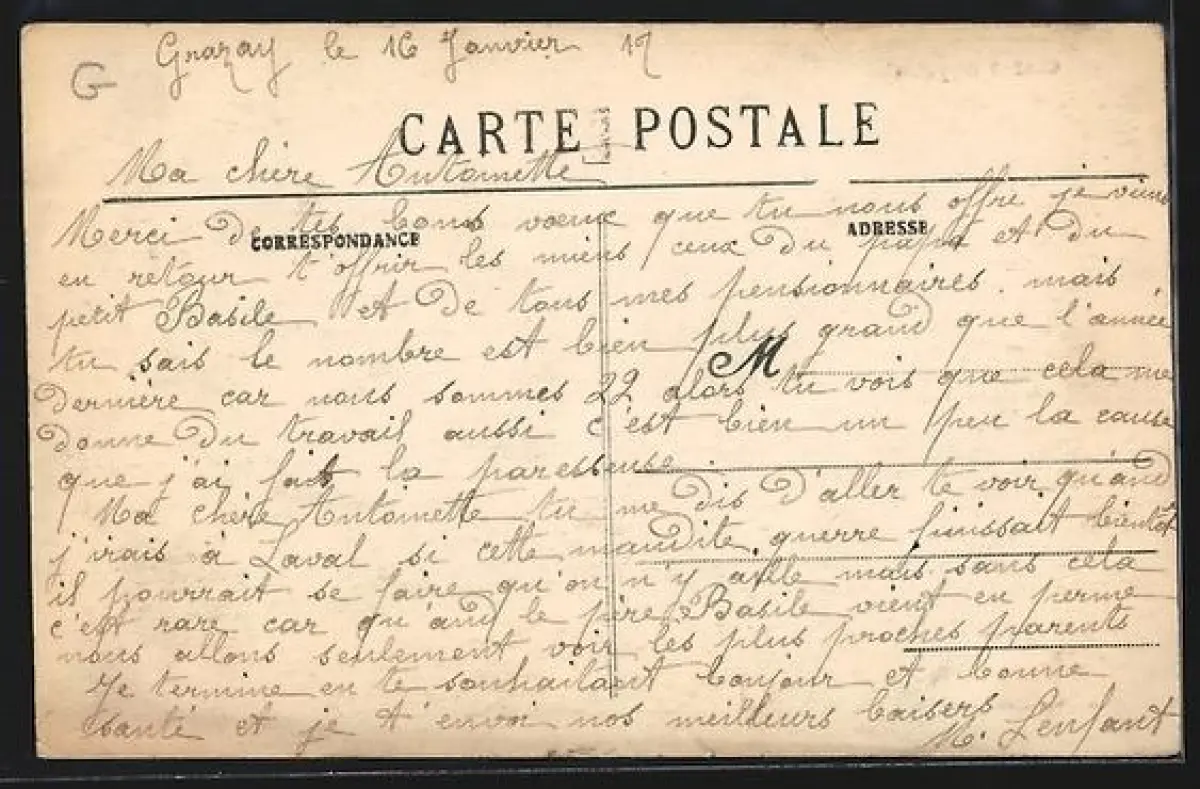 G Grazay le 16 Janvier 17
CARTE POSTALE
Ma chère Antoinette
Merci de tes bons vœux que tu nous offre je viens
CORRESPONDANCE
ADRESSE
en retour t'offrir les miens ceux du papa et du
petit Basile et de tous mes pensionnaires. mais
tu sais le nombre est bien plus grand que l'année
M
dernière car nous sommes 22 alors tu vois que cela me
donne du travail aussi c'est bien un peu la cause
que j'ai fait la paresseuse
Ma chère Antoinette tu me dis d'aller te voir qu'and
j'irais à Laval si cette maudite guerre finissait bientôt
il pourrait se faire qu'on n'y aille mais sans cela
c'est rare car qu'and le père Basile vient en perme
nous allons seulement voir les plus proches parents
Je termine en te souhaitant bonjour et bonne
santé et je t'envoi nos meilleurs baisers
M. Lenfant